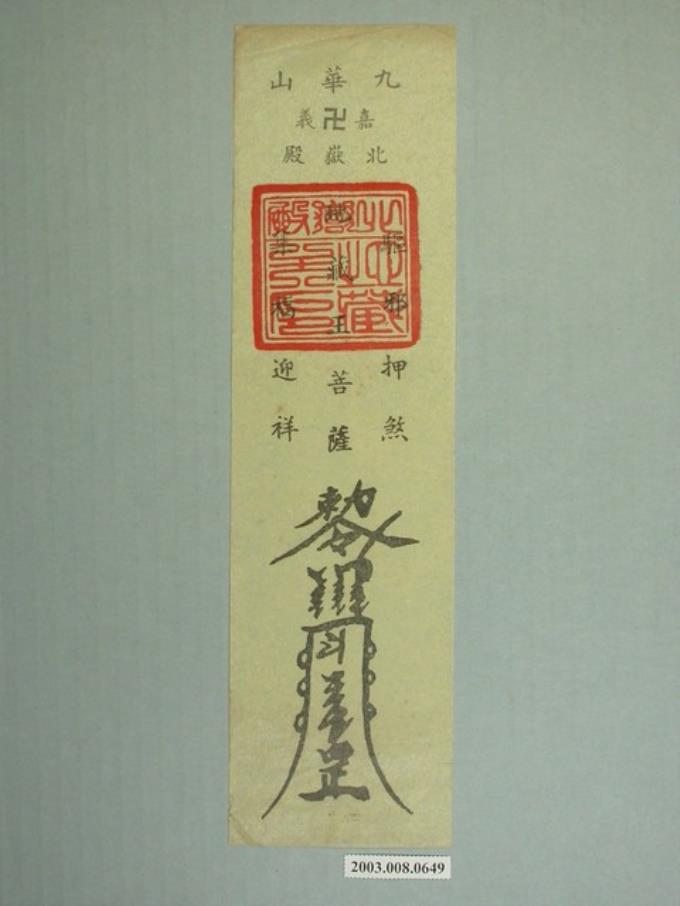 九華山
嘉卍義
北嶽殿
驅邪押煞
地藏王菩薩
集福迎祥
敕令
罡
2003.008.0649